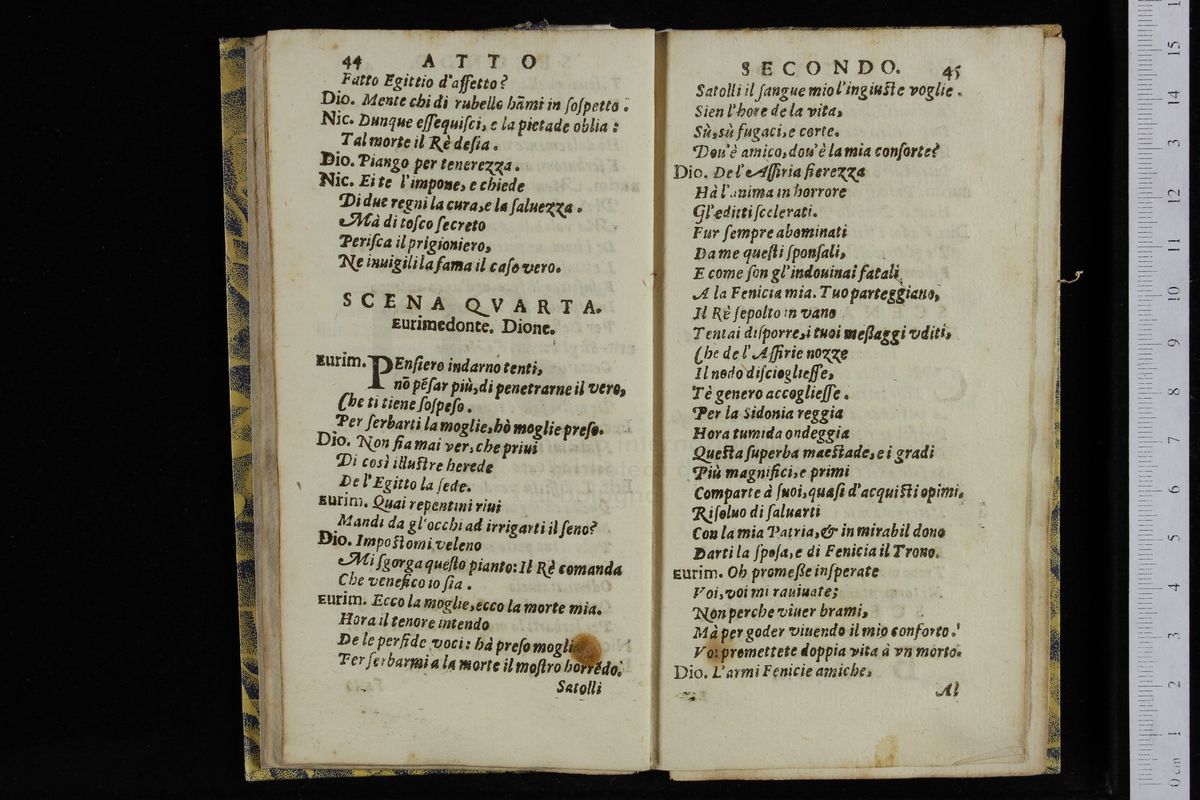 44 ATTO
Fatto Egittio d'affetto?
Dio. Mente chi di rubello hāmi in sospetto.
Nic. Dunque essequisci, e la pietade oblia:
Tal morte il Rè desia.
Dio. Piango per tenerezza.
Nic. Ei te l'impone, e chiede
Di due regni la cura, e la saluezza.
Mà di tosco secreto
Perisca il prigioniero,
Ne inuigili la fama il caso vero.
SCENA QVARTA.
Eurimedonte. Dione.
Eurim. PEnsiero indarno tenti,
nō pēsar più, di penetrarne il vero,
Che ti tiene sospeso.
Per serbarti la moglie, hò moglie preso.
Dio. Non fia mai ver, che priui
Di così illustre herede
De l'Egitto la sede.
Eurim. Quai repentini riui
Mandi da gl'occhi ad irrigarti il seno?
Dio. Impostomi veleno
Mi sgorga questo pianto: Il Rè comanda
Che venefico io sia.
Eurim. Ecco la moglie, ecco la morte mia.
Hora il tenore intendo
De le perfide voci: hà preso moglie
Per serbarmi a la morte il mostro horrēdo.
Satolli
SECONDO. 45
Satolli il sangue mio l'ingiuste voglie.
Sien l'hore de la vita,
Sù, sù fugaci, e corte.
Dou'è amico, dou'è la mia consorte?
Dio. De l'Assiria fierezza
Hà l'anima in horrore
Gl'editti scelerati.
Fur sempre abominati
Da me questi sponsali,
E come son gl'indouinai fatali
A la Fenicia mia. Tuo parteggiano,
Il Rè sepolto in vano
Tentai disporre, i tuoi messaggi vditi,
Che de l'Assirie nozze
Il nodo disciogliesse,
Tè genero accogliesse.
Per la Sidonia reggia
Hora tumida ondeggia
Questa superba maestade, e i gradi
Più magnifici, e primi
Comparte à suoi, quasi d'acquisti opimi.
Risoluo di saluarti
Con la mia Patria, & in mirabil dono
Darti la sposa, e di Fenicia il Trono.
Eurim. Oh promesse insperate
Voi, voi mi rauiuate;
Non perche viuer brami,
Mà per goder viuendo il mio conforto.
Voi promettete doppia vita à vn morto.
Dio. L'armi Fenicie amiche,
Al